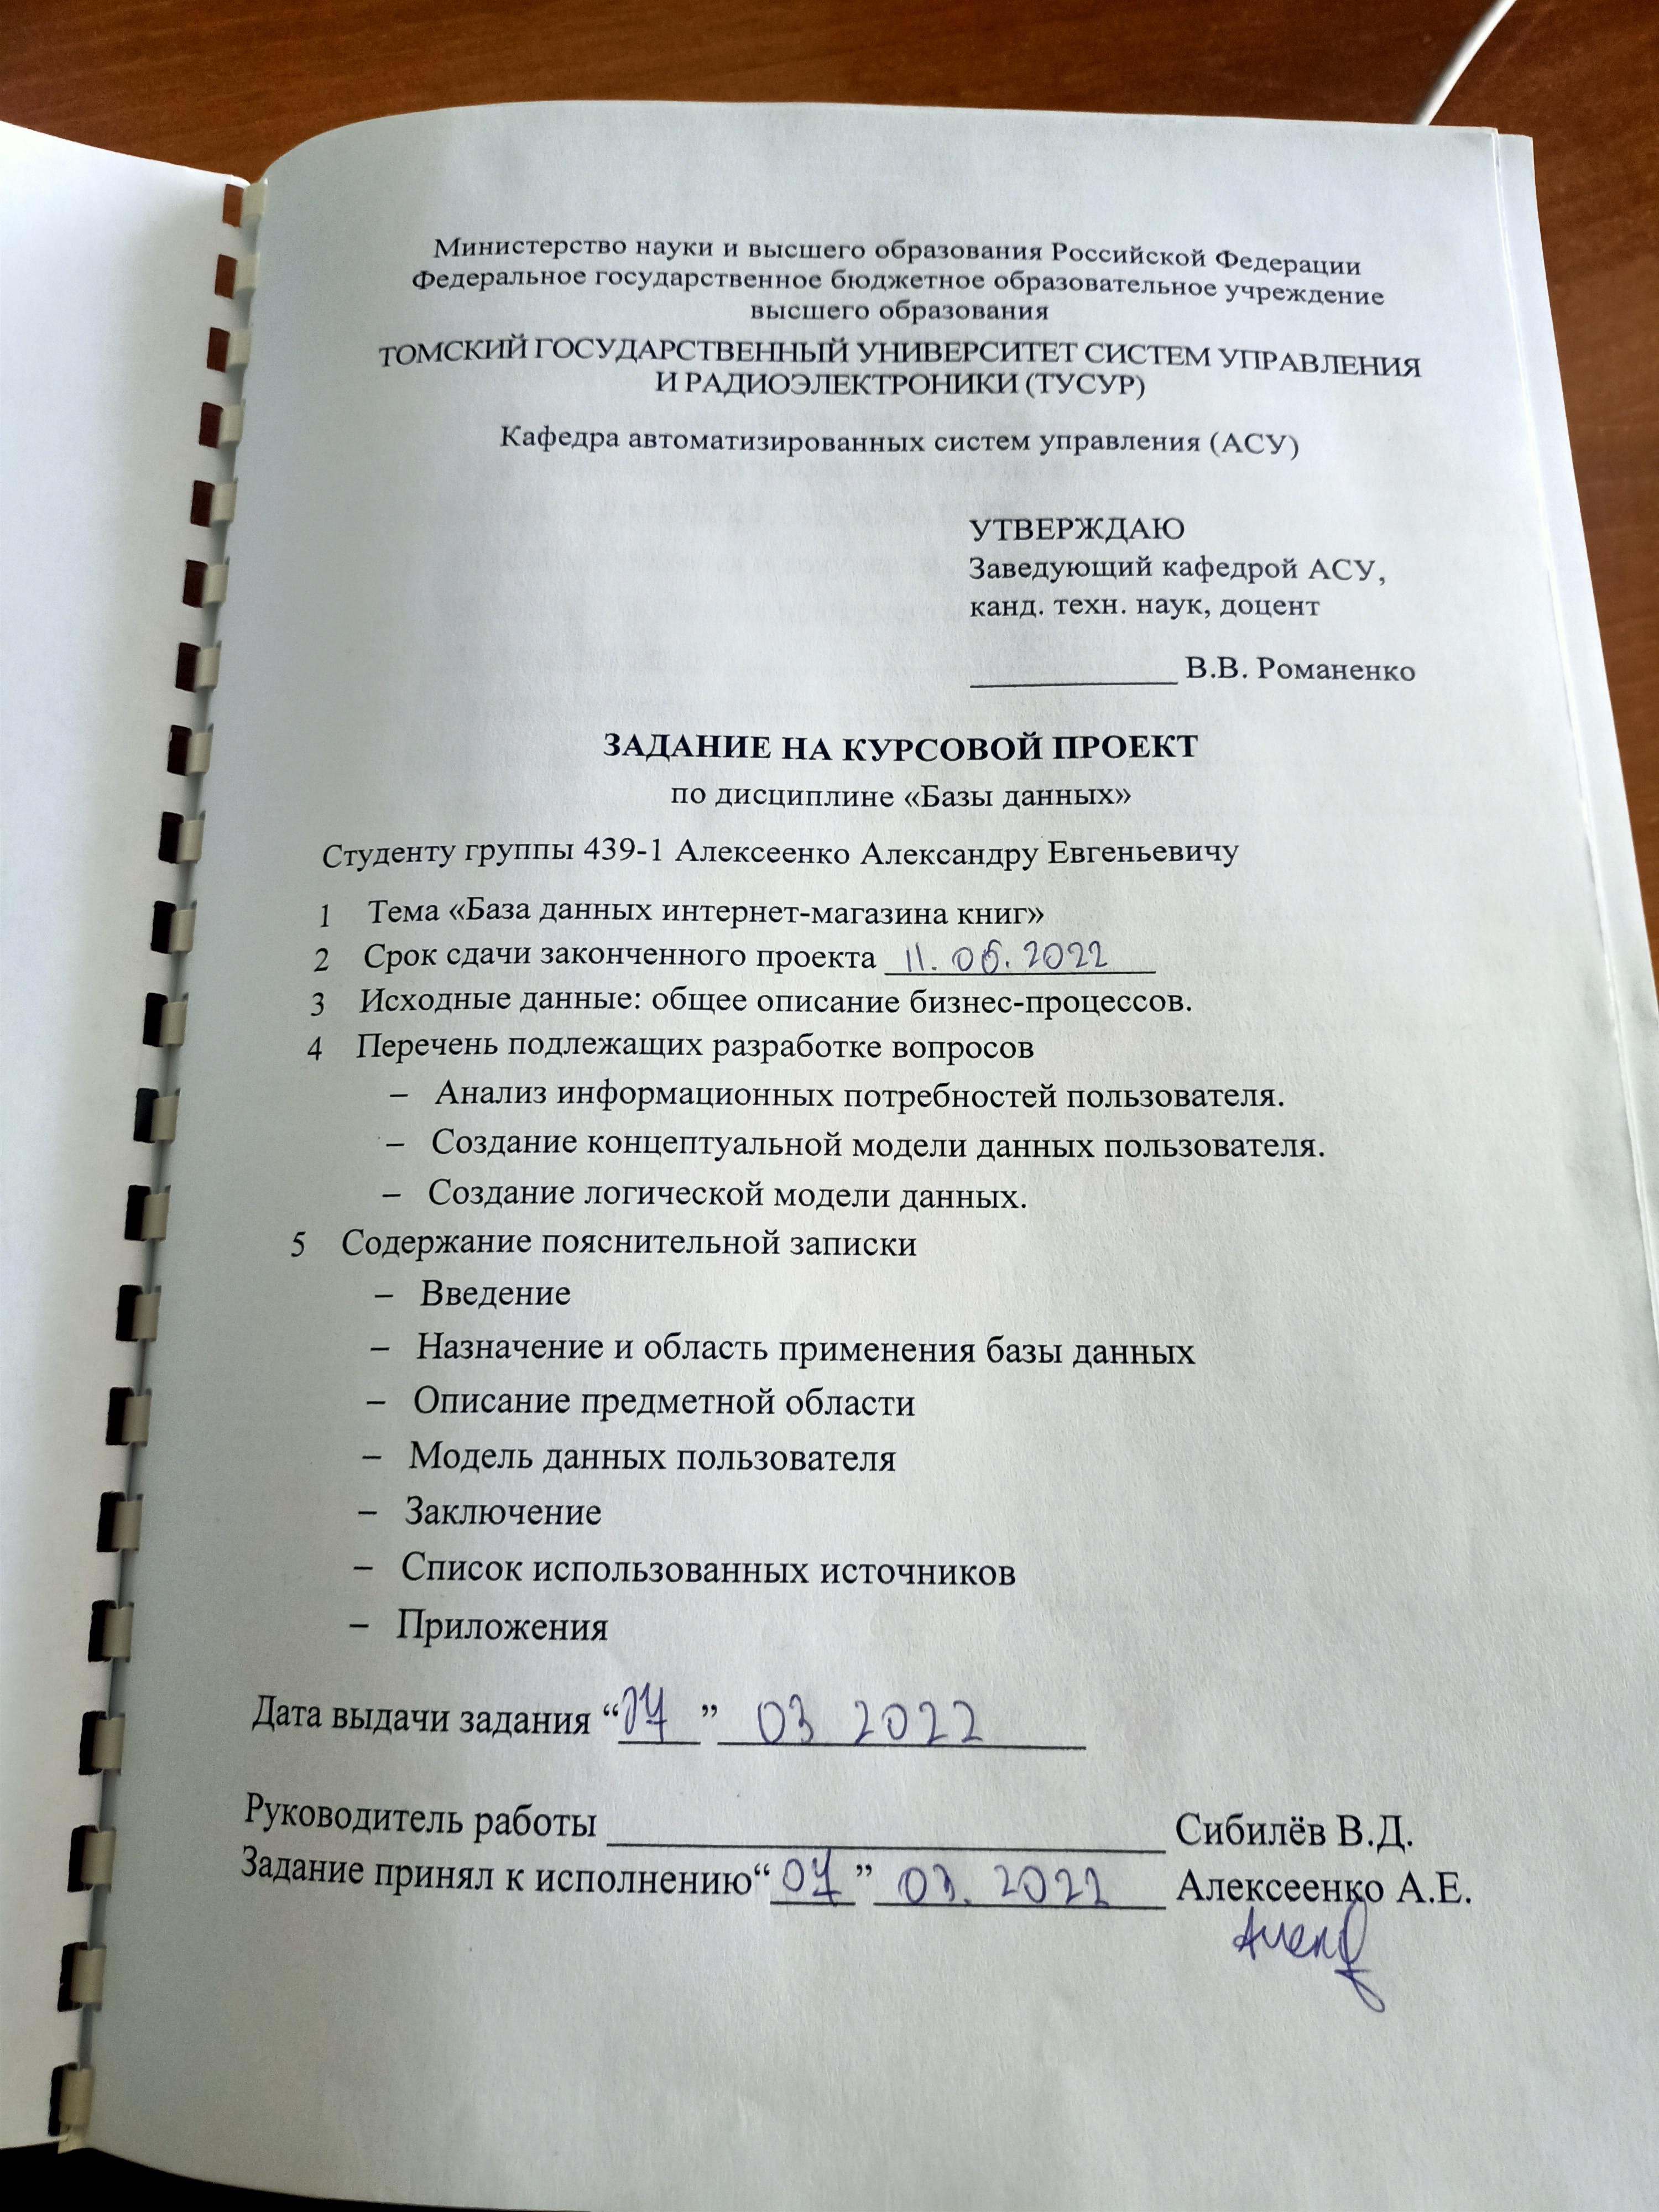 Министерство науки и высшего образования Российской Федерации
Федеральное государственное бюджетное образовательное учреждение
высшего образования
ТОМСКИЙ ГОСУДАРСТВЕННЫЙ УНИВЕРСИТЕТ СИСТЕМ УПРАВЛЕНИЯ
И РАДИОЭЛЕКТРОНИКИ (ТУСУР)
Кафедра автоматизированных систем управления (АСУ)
УТВЕРЖДАЮ
Заведующий кафедрой АСУ,
канд. техн. наук, доцент
____________ В.В. Романенко
ЗАДАНИЕ НА КУРСОВОЙ ПРОЕКТ
по дисциплине «Базы данных»
Студенту группы 439-1 Алексеенко Александру Евгеньевичу
1 Тема «База данных интернет-магазина книг»
2 Срок сдачи законченного проекта 11.06.2022
3 Исходные данные: общее описание бизнес-процессов.
4 Перечень подлежащих разработке вопросов
– Анализ информационных потребностей пользователя.
– Создание концептуальной модели данных пользователя.
– Создание логической модели данных.
5 Содержание пояснительной записки
– Введение
– Назначение и область применения базы данных
– Описание предметной области
– Модель данных пользователя
– Заключение
– Список использованных источников
– Приложения
Дата выдачи задания “07” 03 2022
Руководитель работы ____________ Сибилёв В.Д.
Задание принял к исполнению “07” 03. 2022 Алексеенко А.Е.